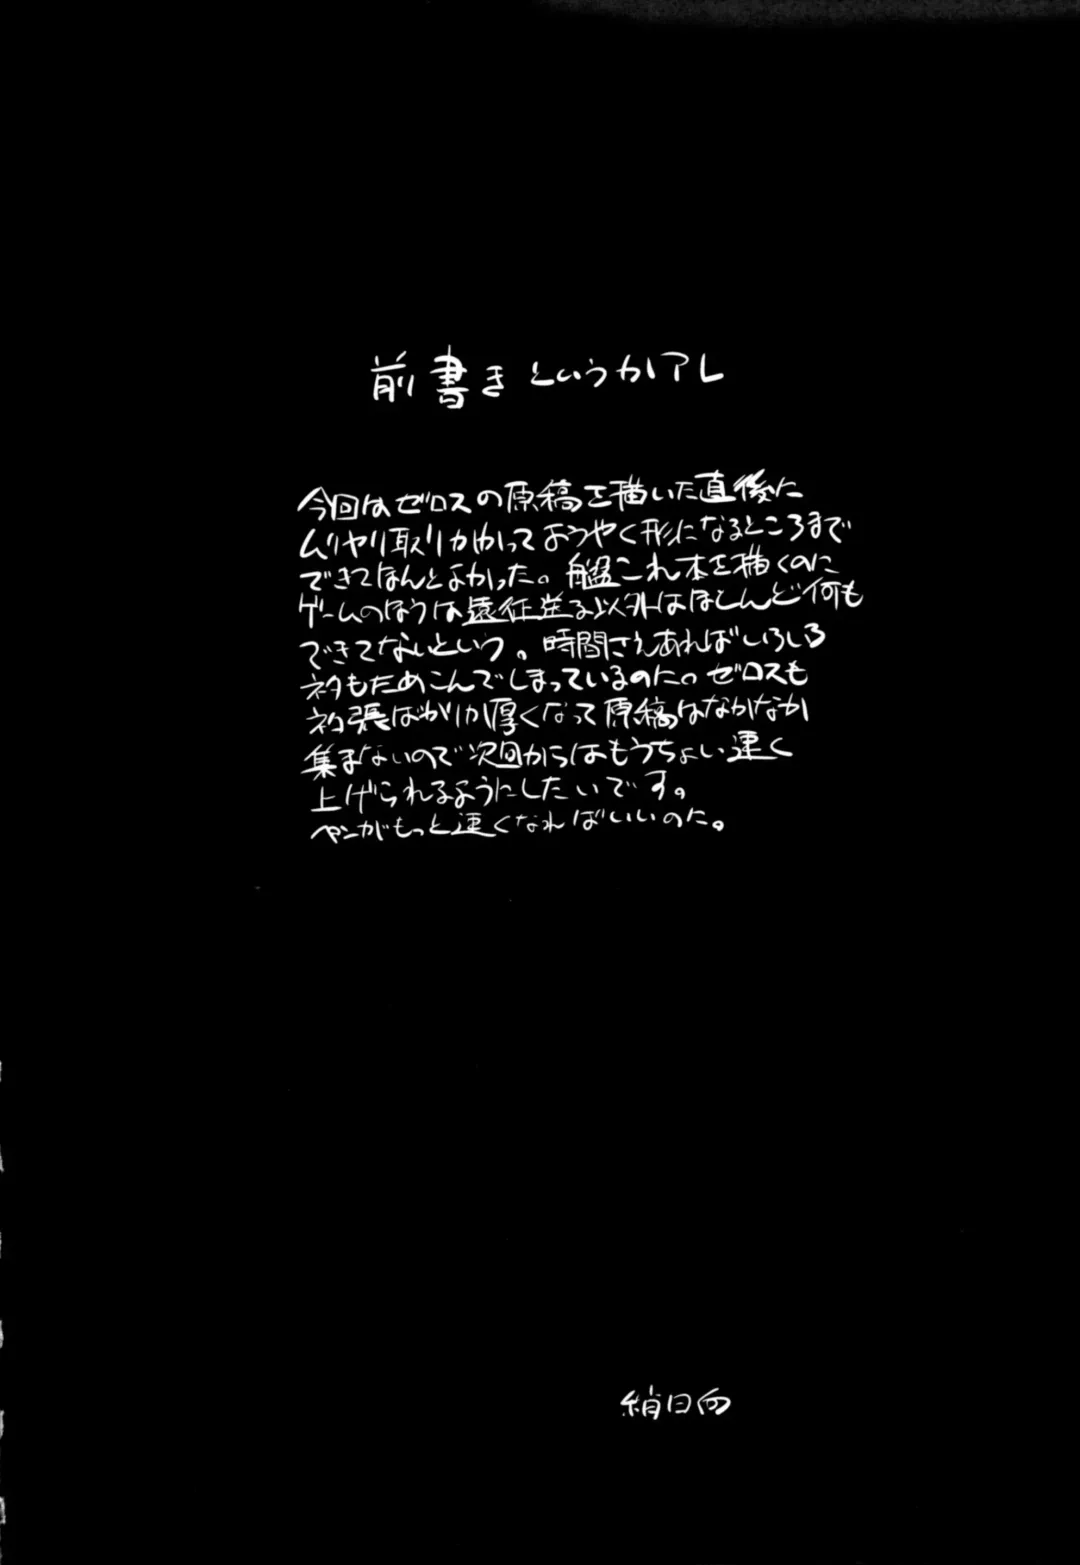 前書きというかアレ
今回はゼロスの原稿を描いた直後に
ムリヤリ取りかかってようやく形になるところまで
できてなんとよかった。艦これ本を描くのに
ゲームのほうは遠征送る以外はほとんど何も
できてないという。時間さえあればいろいろ
ネタもためこんでしまっているのに。ゼロスも
ネタ張ばかりが厚くなって原稿はなかなか
集まないので次回からはもうちょい速く
上げられるようにしたいです。
ペンがもっと速くなればいいのに。
綃日向